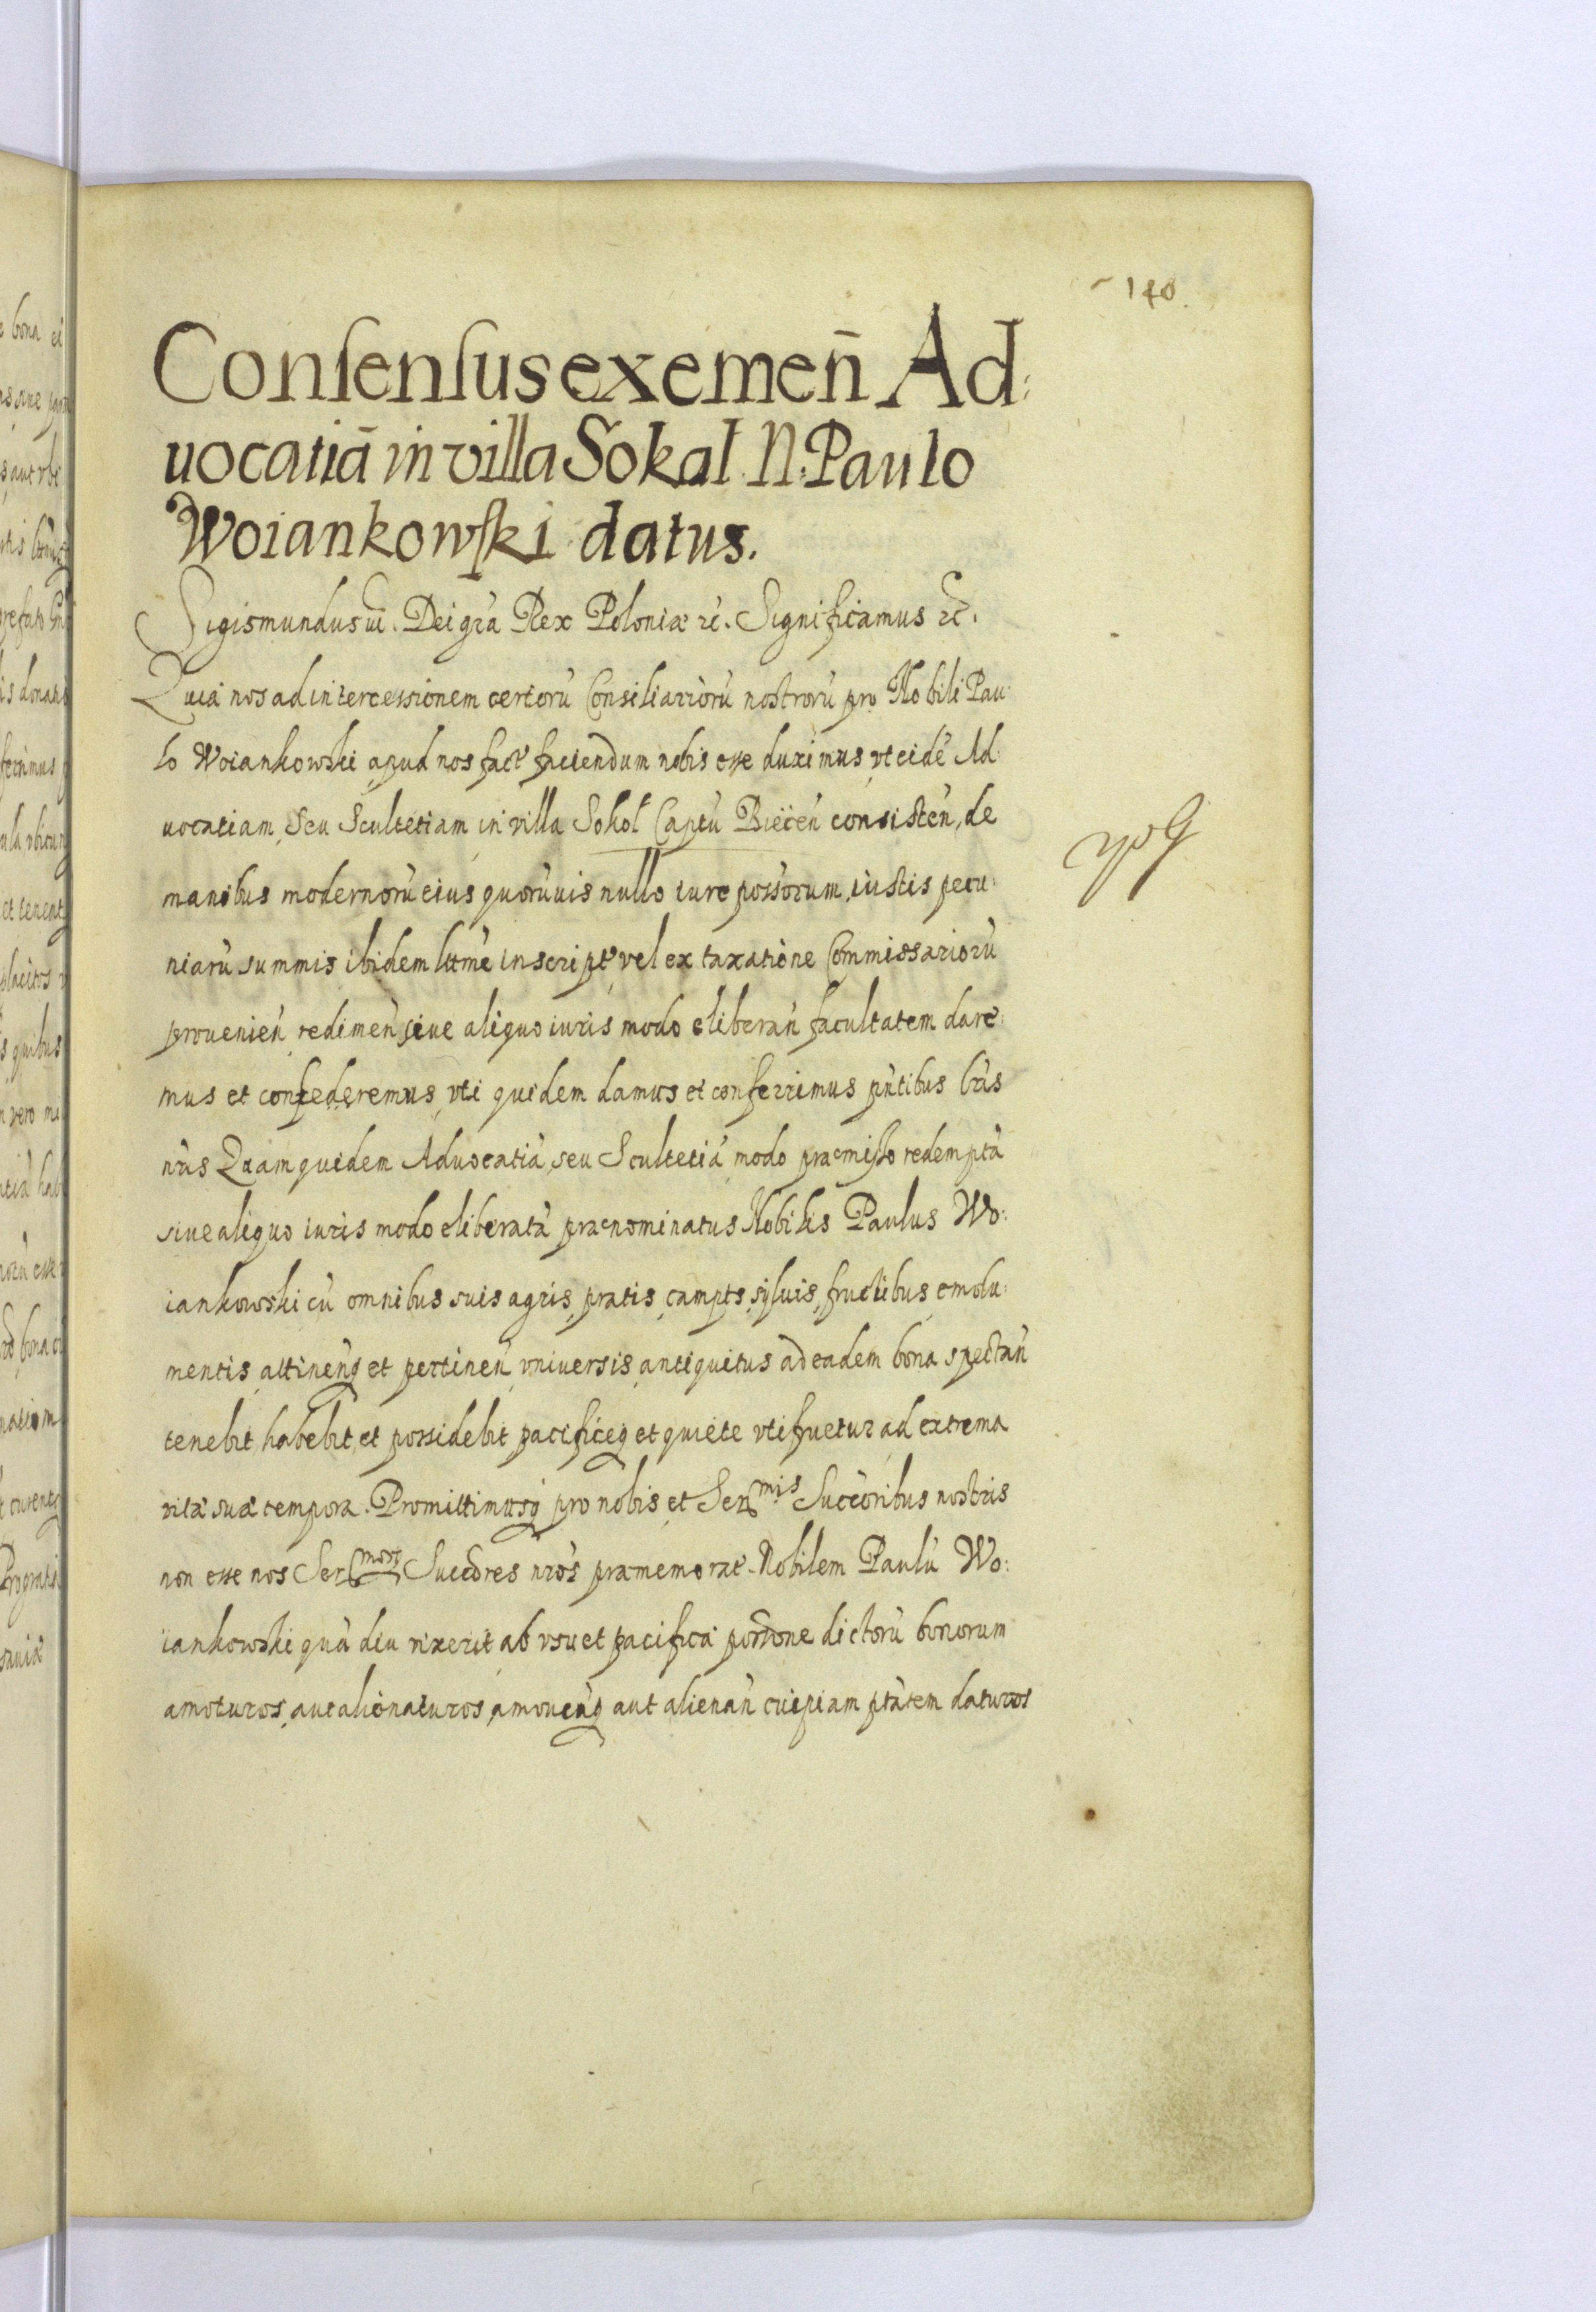 140.
Consensus exemeñ Ad:
uocatiā in villa Sokal N: Paulo
Woiankowski datus.
Sigismundus iii. Dei gr̃a Rex Poloniæ rc̃. Significamus rc̃.
Quia nos ad intercessionem certorũ Consiliariorũ nostrorũ pro Nobili Pau:
lo Woiankowski apud nos fact̃ faciendum nobis esse duximus, vt eidẽ Ad:
uocatiam, seu Scultetiam in villa Sokol Captũ Biecen̄ consisten̄, de
manibus modernorũ eius quorũuis nullo iure posšorum, iustis pecu:
niarũ summis ibidem lttme inscript̃, vel ex taxatione Commissariorũ
prouenien̄, redimen̄, siue aliquo iuris modo eliberan̄ facultatem dare:
mus et concederemus, vti quidem damus et conferrimus pn̄tibus lr̃is
nr̃is Quam quidem Aduocatiã, seu Scultetiã modo præmisso redemptã
siue aliquo iuris modo eliberatã prænominatus Nobilis Paulus Wo:
iankowski cũ omnibus suis agris, pratis, campis, syluis, fructibus, emolu:
mentis, attinen̄q et pertinen̄, vniuersis, antiquitus ad eadem bona spectan̄
tenebit, habebit, et possidebit pacificeq et quiete vtifruetur ad extrema
vitæ suæ tempora. Promittimusq pro nobis, et Ser^mis Succoribus nostris
non esse nos Ser^mosq Succores nr̃os præmemorat̃. Nobilem Paulũ Wo:
iankowski quã diu vixerit ab vsu et pacifica possione dictorũ bonorum
amoturos, aut alienaturos, amouen̄q aut alienan̄ cuipiam ptãtem daturos